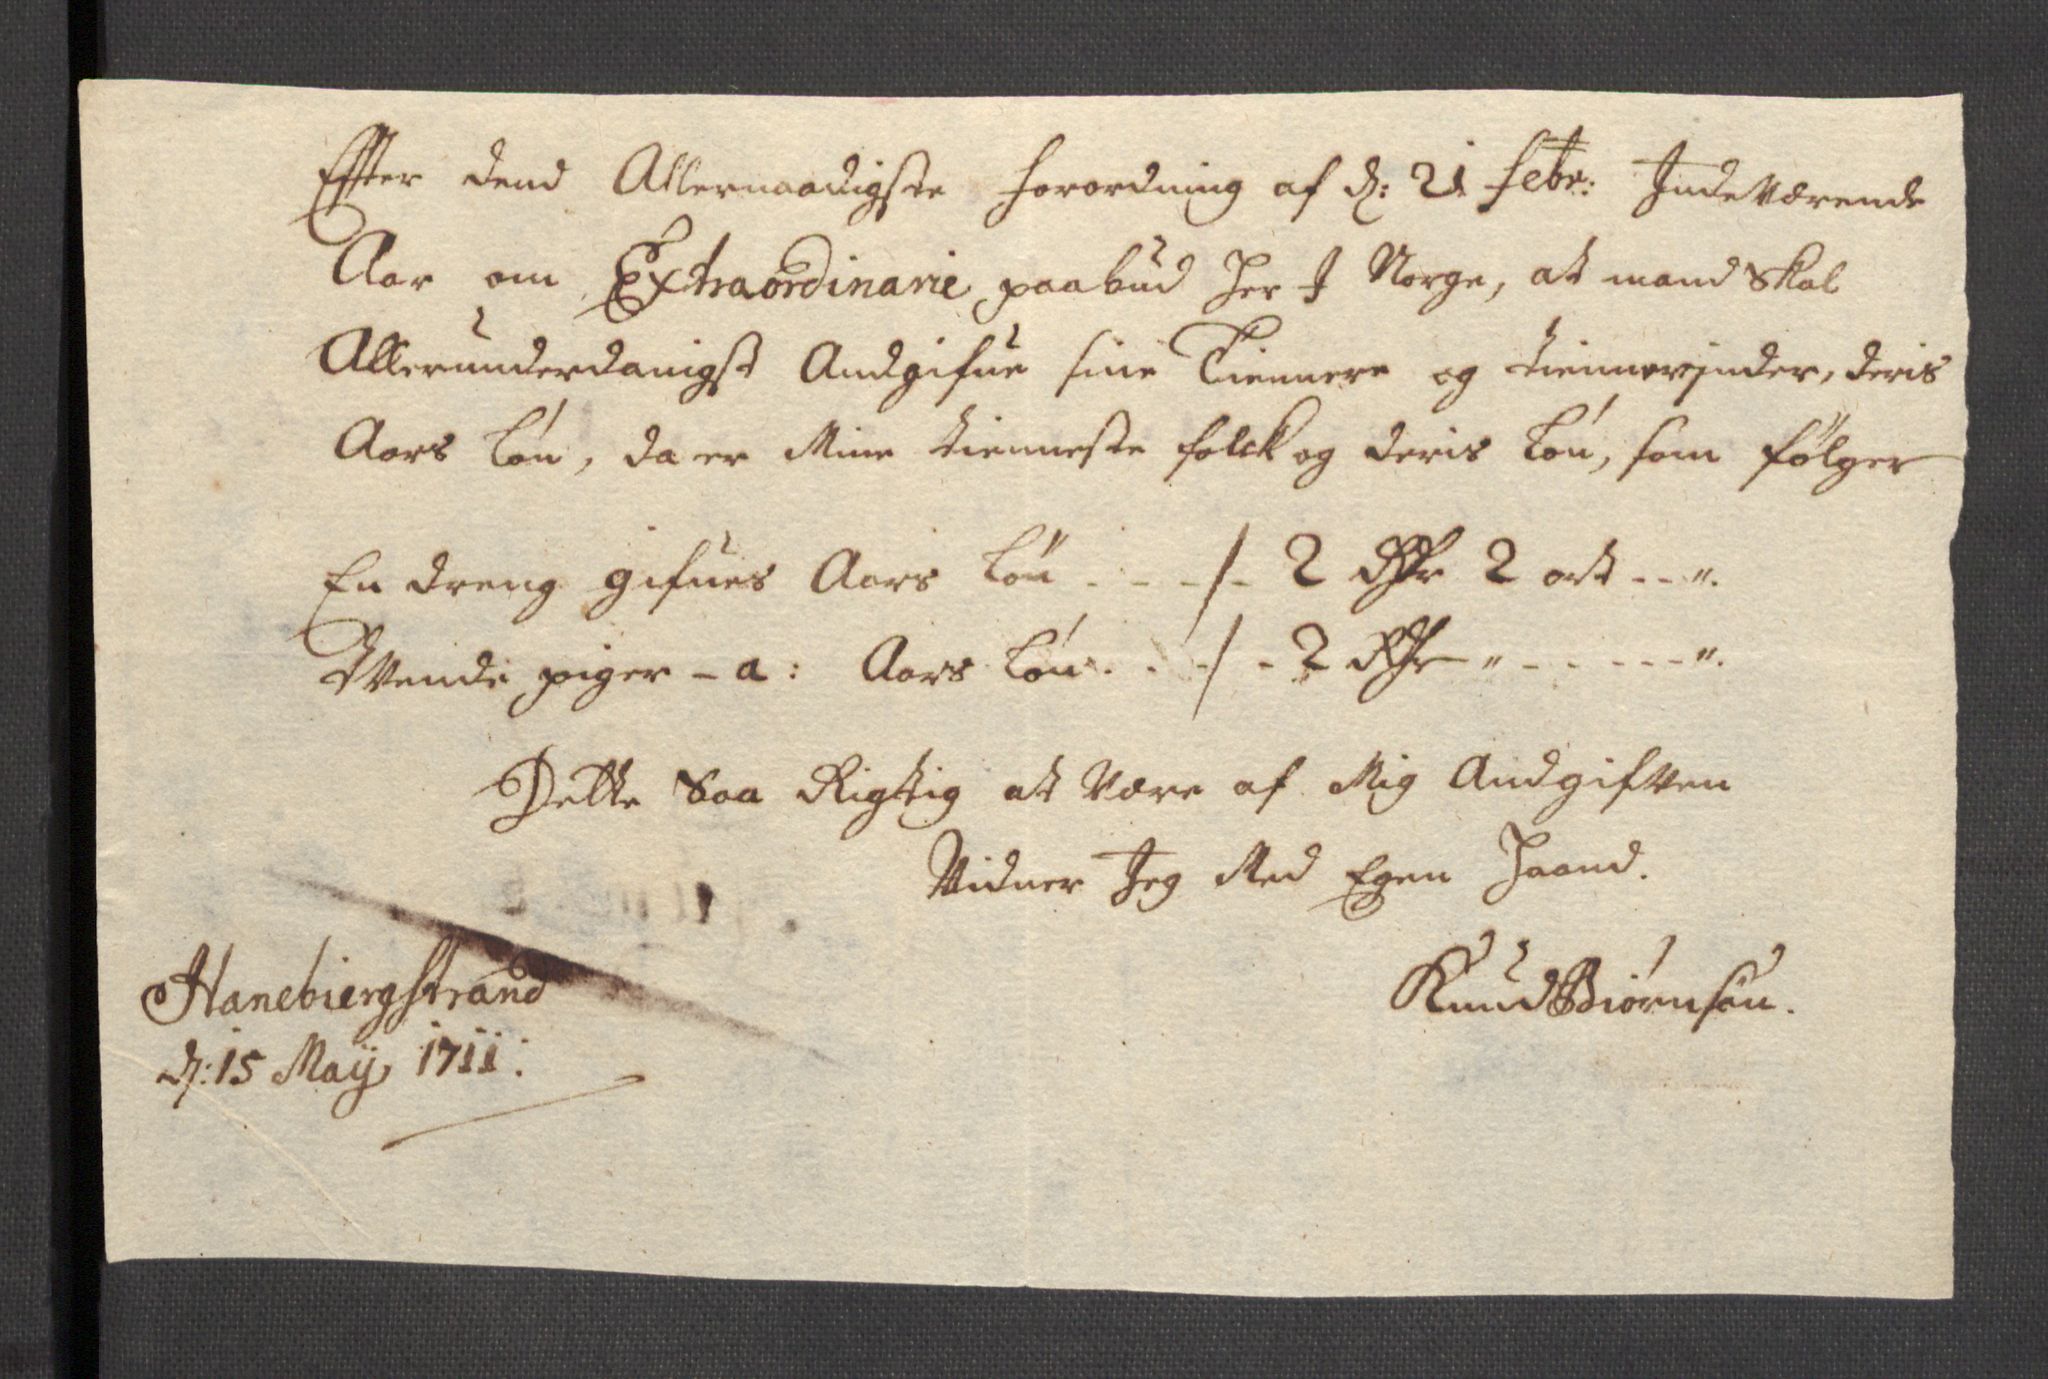 Effter dend Allernaadigste forordning af d: 21 febr: Indeværende
Aar om Extraordinarie paabud her I Norge, at mand skal
Allerunderdanigst Andgifue sine Tiennere og tiennerinder, deris
Aars Løn, da er Mine tienneste folck og deris Løn, som følger
En dreng gifues Aars Løn - - - /- 2 Rdr 2 ort - - ".
Tvende piger - a: Aars Løn - - /- 2 Rdr " - - - - - ".
Dette Saa Rigtig at Være af Mig Andgifven
Vidner Jeg Med Egen Haand.
Knud Biørnsøn.
Hanebiergstrand
d: 15 Maij 1711: